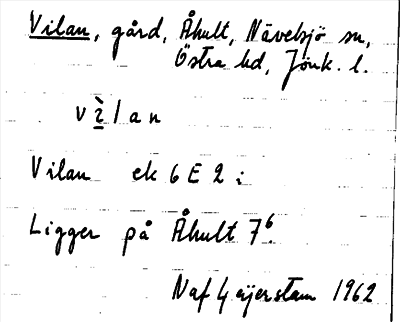 Vilan, gård, Åhult, Nävelsjö sn,
Östra hd, Jönk. l.
v ì l a n
Vilan ek 6 E 2 :
Ligger på Åhult 7⁶.
Naf Gyerstam 1962